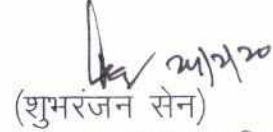 24/2/20
(शुभरंजन सेन)